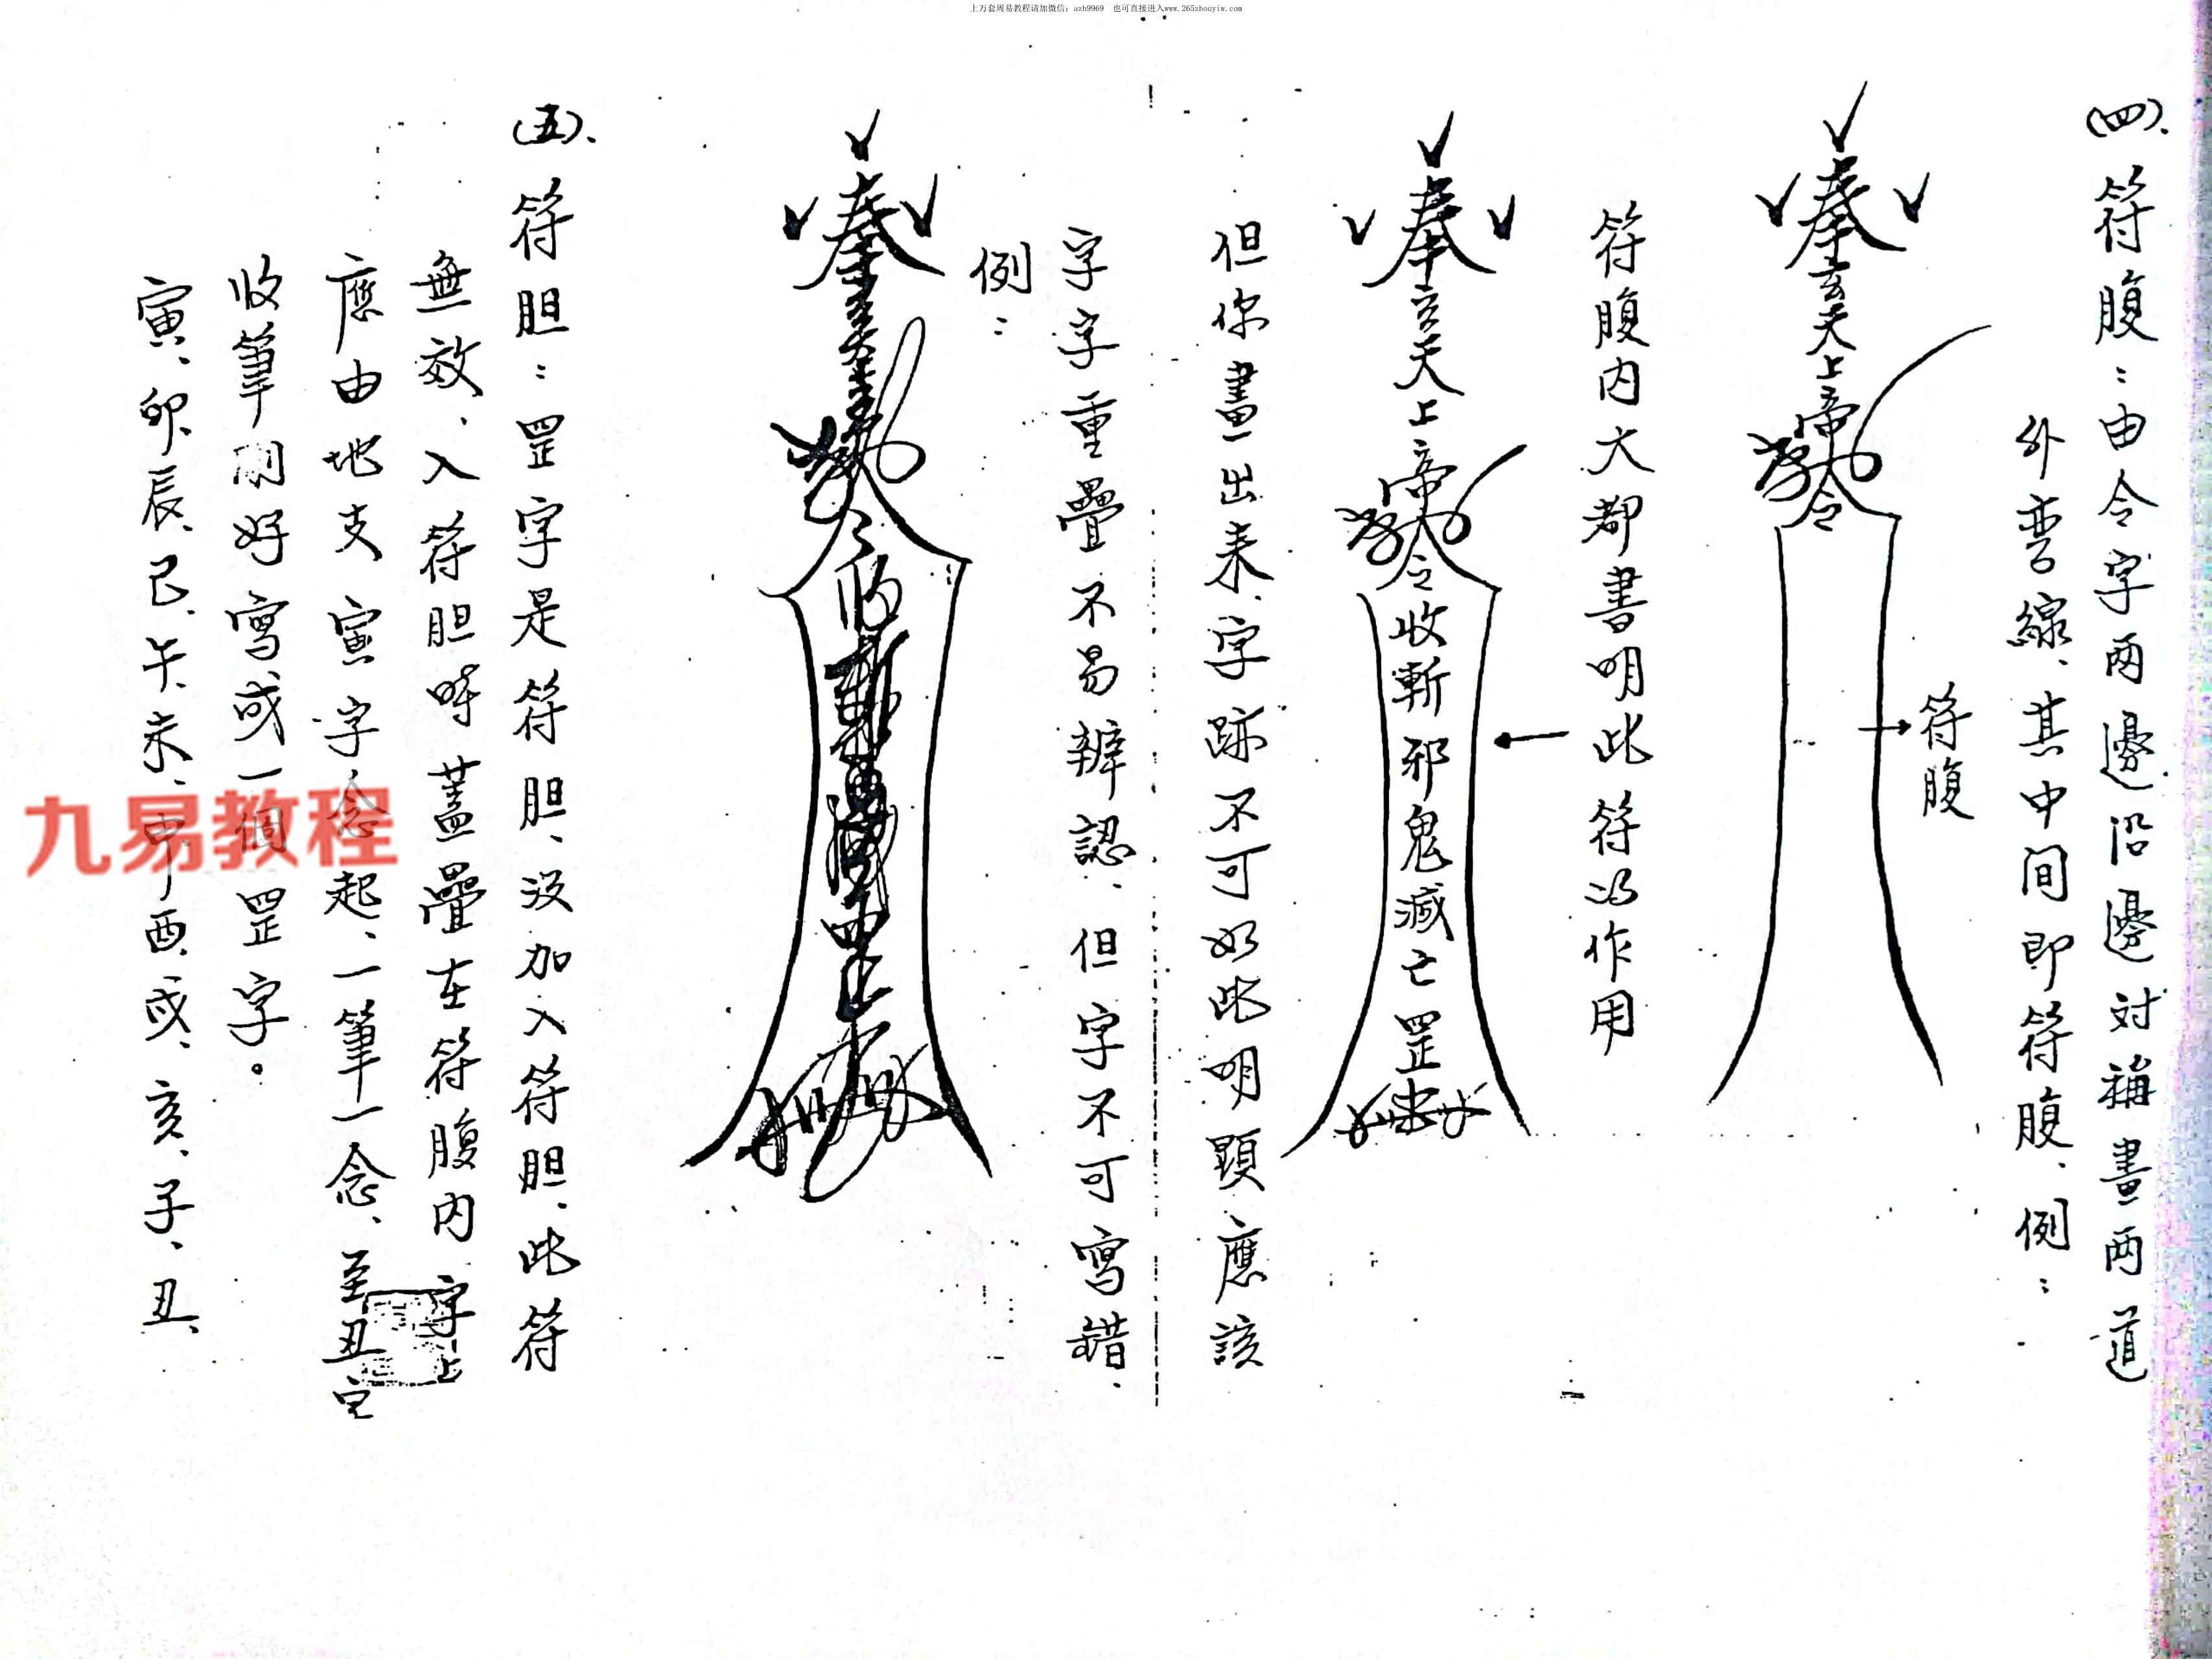 上万套周易教程请加微信：azh9969 也可直接进入www.265zhouyiw.com
(四)、符腹：由令字兩邊沿邊对稱畫两道
外弯線、其中间即符腹、例：
奉玄天上帝敕令
符腹
符腹内大都書明此符的作用
奉玄天上帝敕令收斬邪鬼滅亡罡
但你畫出来、字跡不可如此明顕應該
字字重疊不易辨認、但字不可寫錯、
例：
奉
(五)、符胆：罡字是符胆、没加入符胆、此符
無效、入符胆時蓋疊在符腹内字上
應由地支寅字念起、一筆一念、至丑字
收筆剛好寫成一個罡字。
寅、卯、辰、巳、午、未、申、酉、戌、亥、子、丑、
九易教程